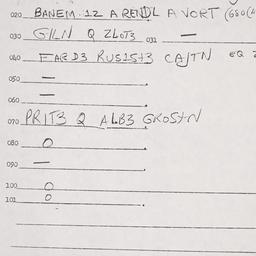 020 BANEM. 12 A RENDL A VORT (680(4
030 GILN Q ZLOT3 031 —
040 FARD3 RUS15t3 CAJTN EQ
050 —
060 —
070 PRIT3 Q ALB3 GKOStN
080 O
090 —
100 O
101 O